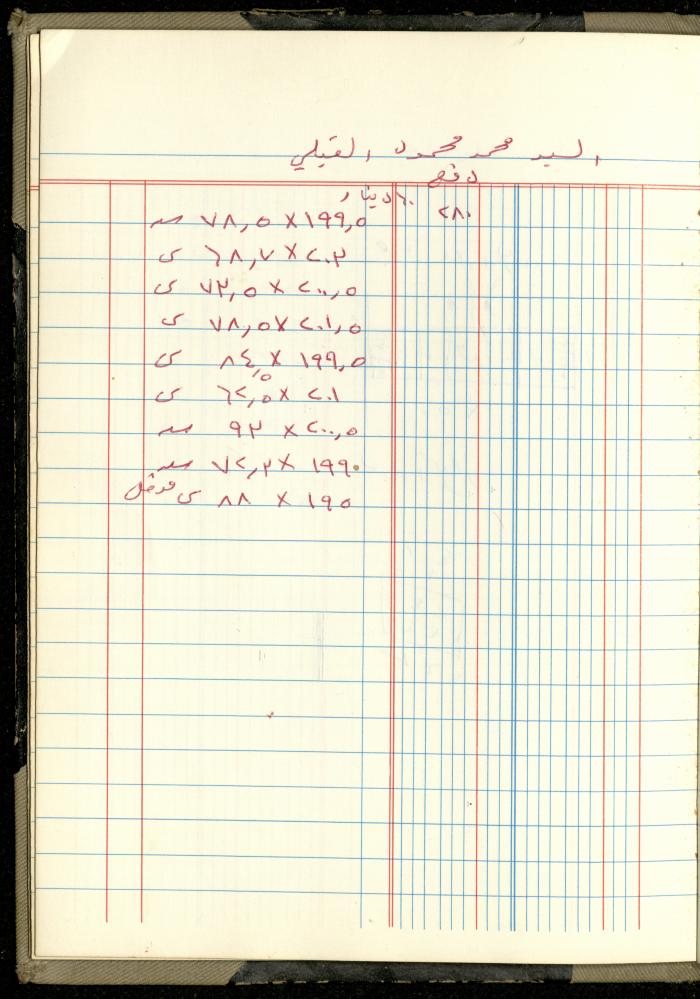 السيد محمد محمود القبلي
دفع
٢٨٠ ٦٠ دينار
١٩٩,٥ × ٧٨,٥ صد
٢٠٣ × ٦٨,٧ ى
٢٠٠,٥ × ٧٣,٥ ى
٢٠١,٥ × ٧٨,٥ ى
١٩٩,٥ × ٨٤,٥ ى
٢٠١ × ٦٢,٥ ى
٢٠٠,٥ × ٩٣ صد
١٩٩ × ٧٢,٣ صد
١٩٥ × ٨٨ ى